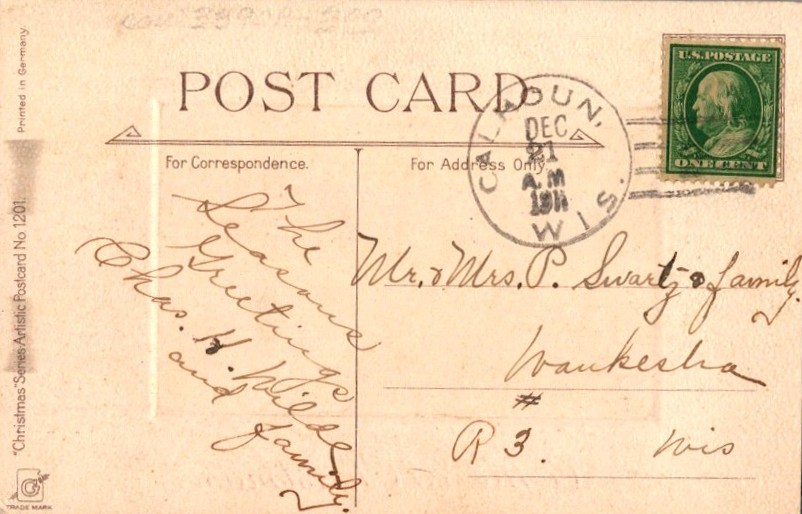 POST CARD
For Correspondence.
For Address Only.
CALHOUN,
DEC
21
A.M
1911
WIS.
U.S. POSTAGE
ONE CENT
The
Seasons
Greetings
Chas. H. Wilde
and family.
Mr. & Mrs. P. Swartz & family.
Waukesha
#
R 3. Wis
Printed in Germany
"Christmas" Series Artistic Postcard No 1201.
TRADE MARK